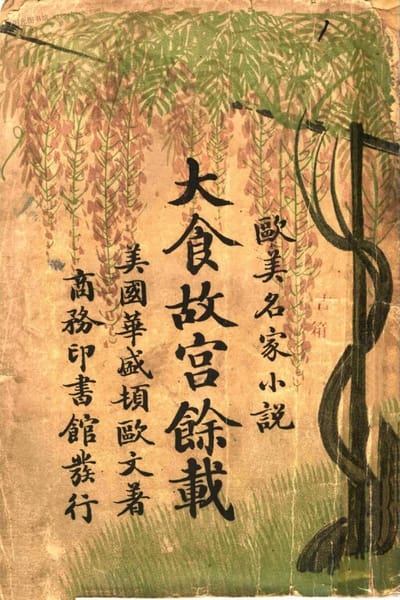 歐美名家小說
大食故宮餘載
美國華盛頓歐文著
商務印書館發行